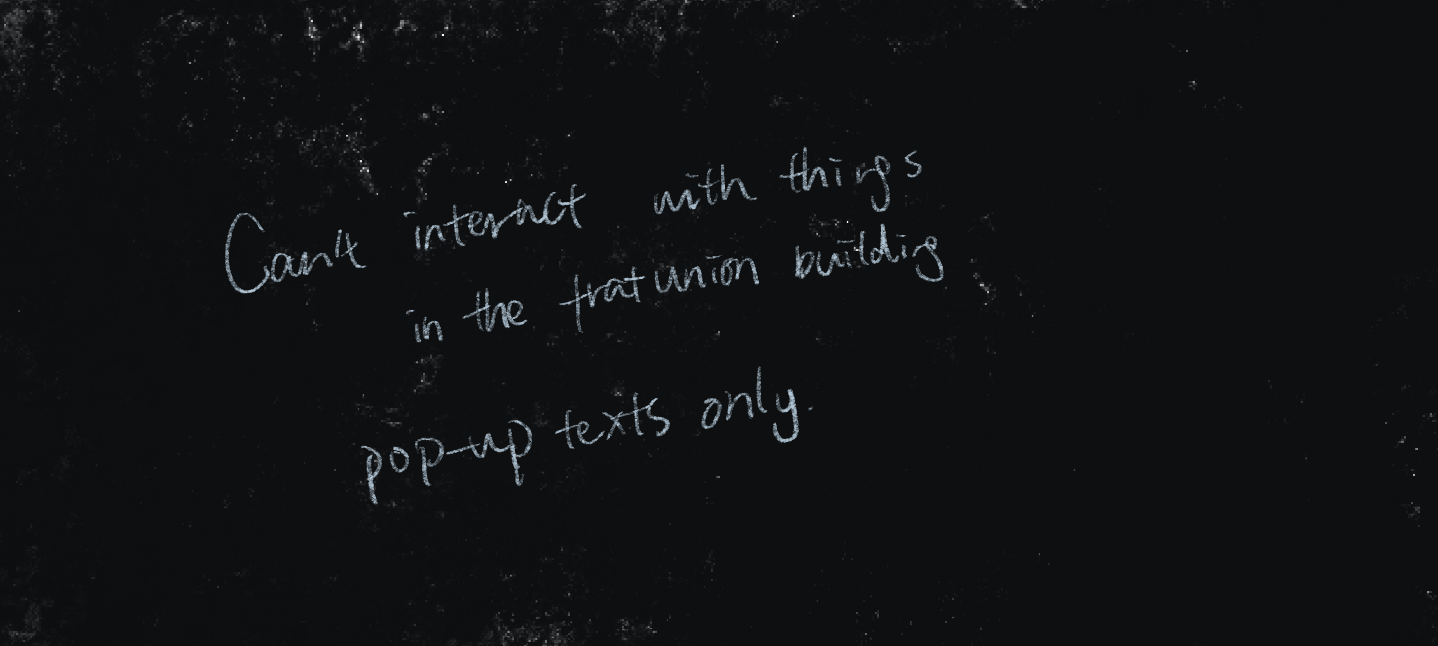 Can't interact with things
in the frat union building
pop-up texts only.